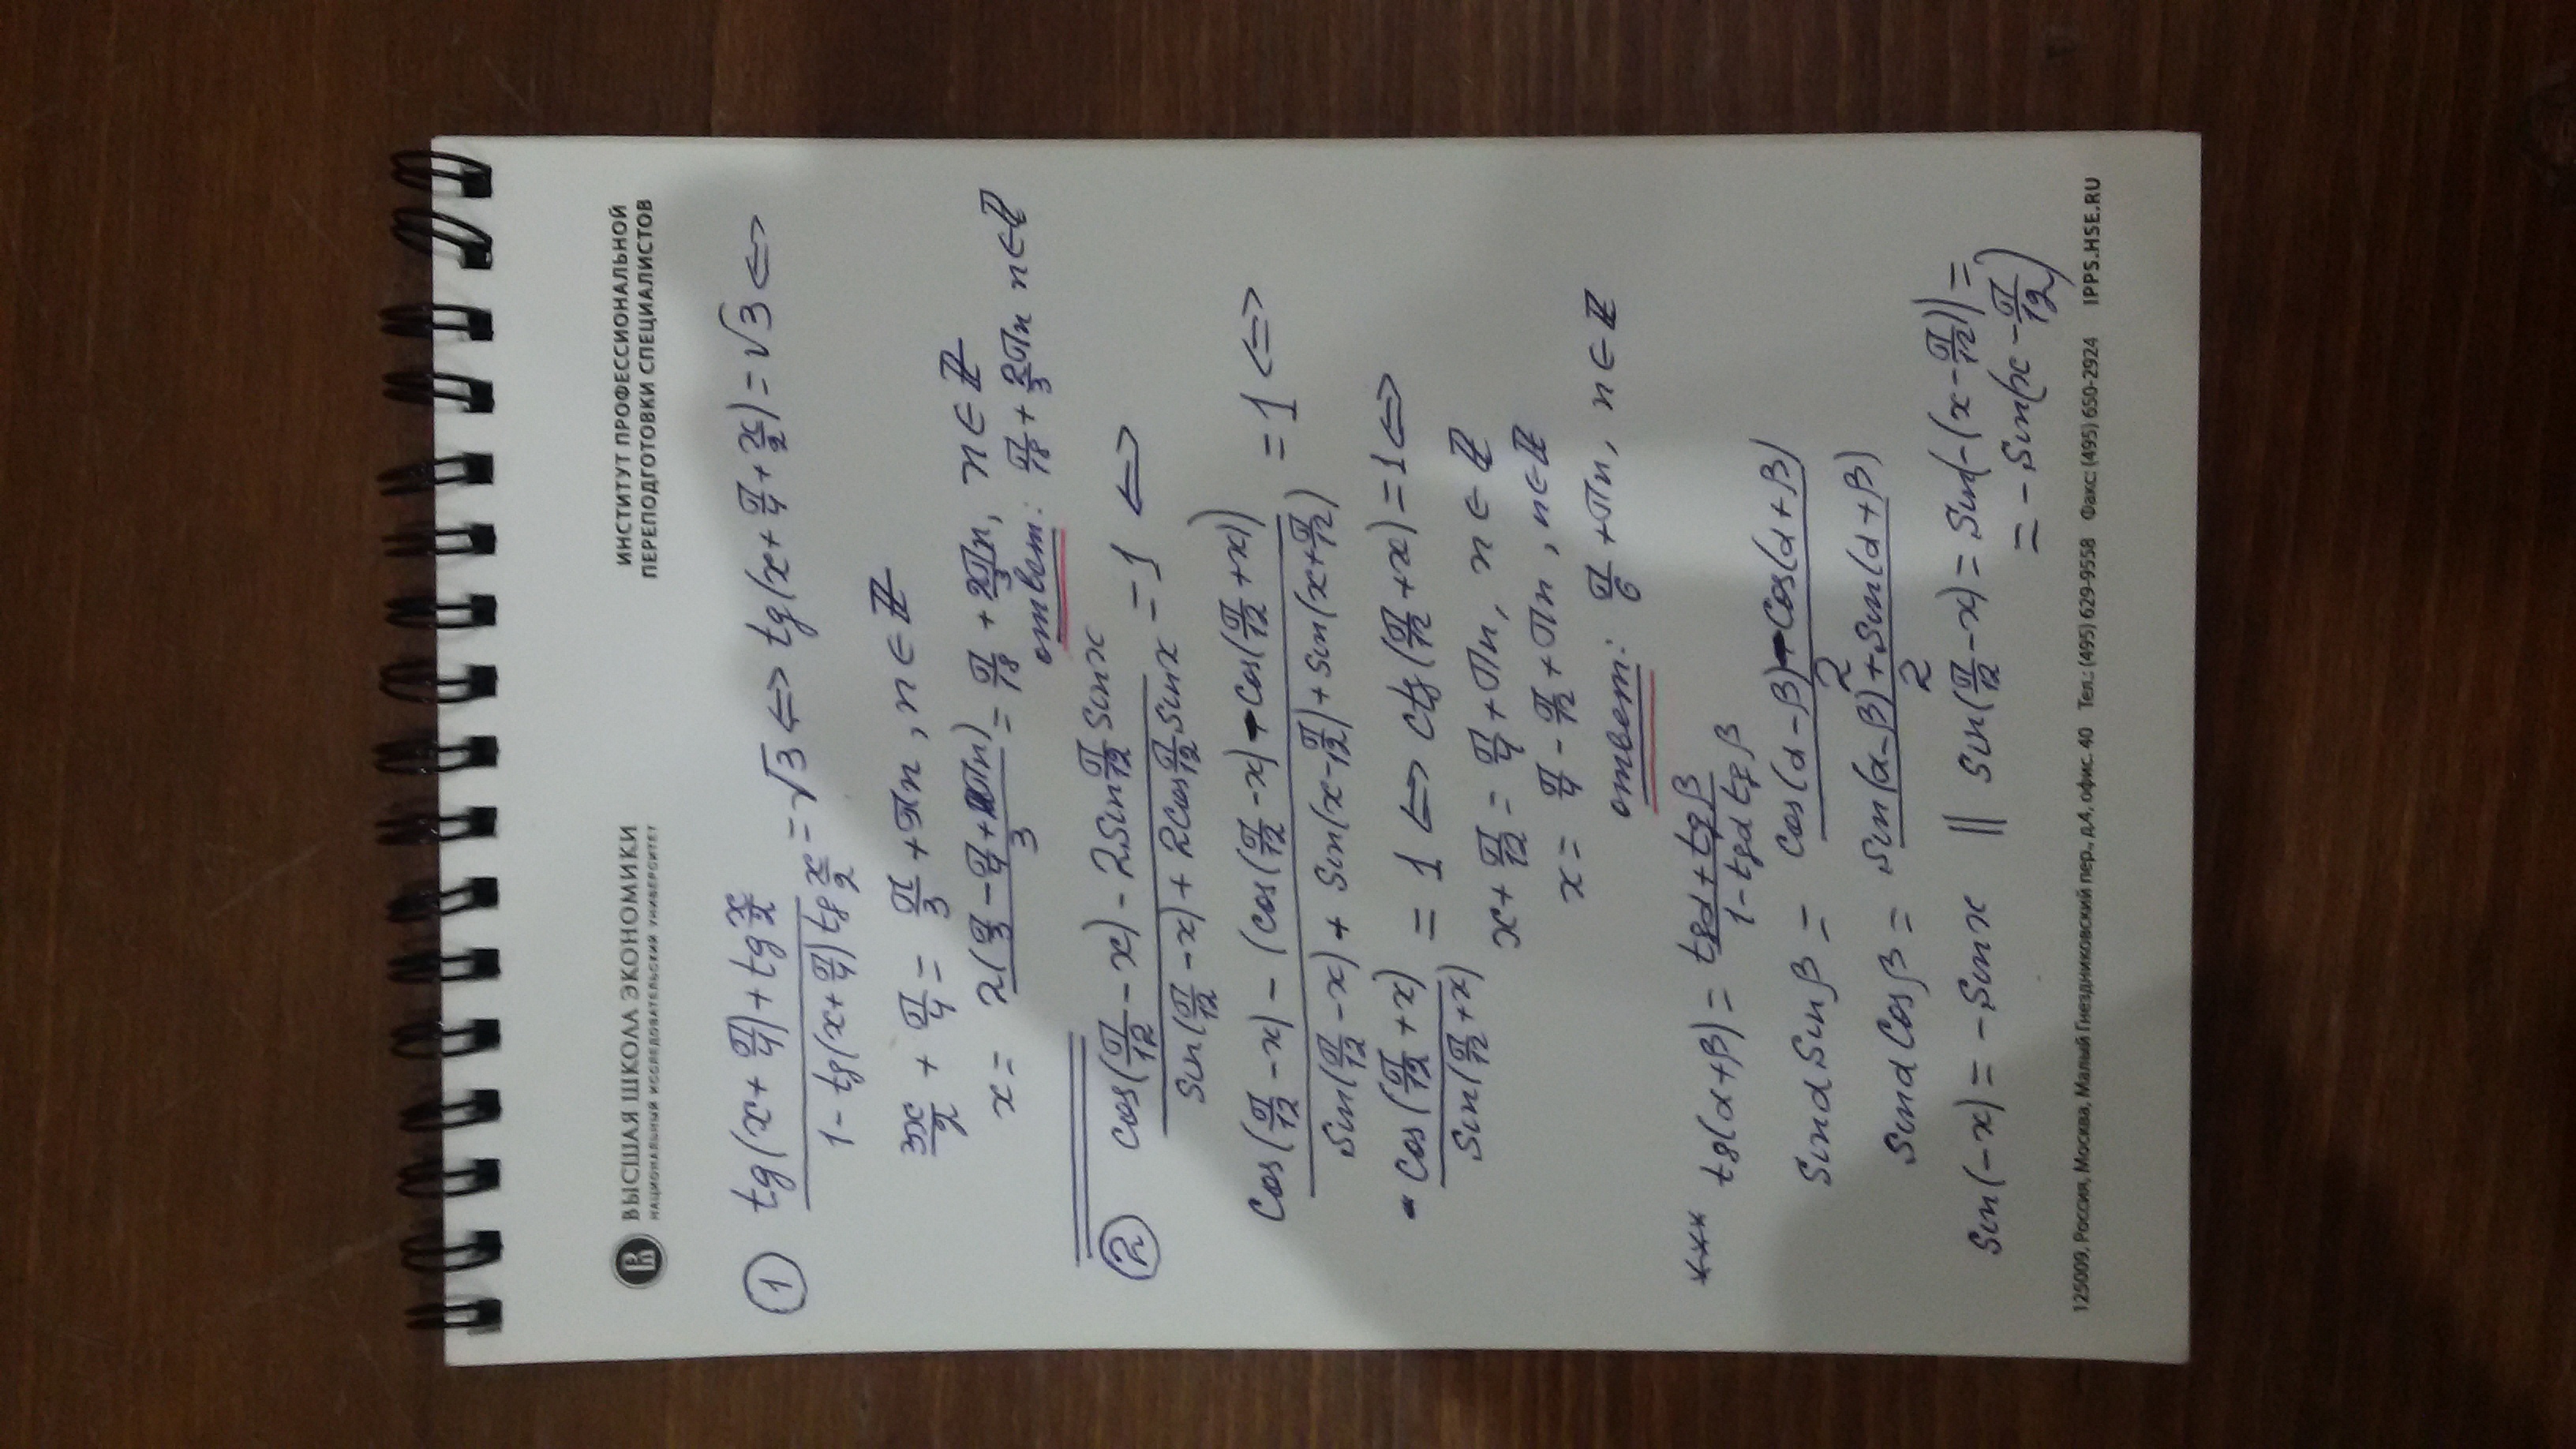 ВЫСШАЯ ШКОЛА ЭКОНОМИКИ
НАЦИОНАЛЬНЫЙ ИССЛЕДОВАТЕЛЬСКИЙ УНИВЕРСИТЕТ
ИНСТИТУТ ПРОФЕССИОНАЛЬНОЙ
ПЕРЕПОДГОТОВКИ СПЕЦИАЛИСТОВ
① (tg(x + π/4) + tg x/2) / (1 - tg(x + π/4) tg x/2) = √3 ⇔ tg(x + π/4 + x/2) = √3 ⇔
3x/2 + π/4 = π/3 + πn, n ∈ ℤ
x = 2(π/3 - π/4 + πn) / 3 = π/18 + 2πn/3, n ∈ ℤ
ответ: π/18 + 2/3 πn n ∈ ℤ
② (cos(π/12 - x) - 2 sin π/12 sin x) / (sin(π/12 - x) + 2 cos π/12 sin x) = 1 ⇔
(cos(π/12 - x) - (cos(π/12 - x) - cos(π/12 + x))) / (sin(π/12 - x) + sin(x - π/12) + sin(x + π/12)) = 1 ⇔
cos(π/12 + x) / sin(π/12 + x) = 1 ⇔ ctg(π/12 + x) = 1 ⇔
x + π/12 = π/4 + πn, n ∈ ℤ
x = π/4 - π/12 + πn, n ∈ ℤ
ответ: π/6 + πn, n ∈ ℤ
*** tg(α + β) = (tgα + tgβ) / (1 - tgα tgβ)
sinα sinβ = (cos(α - β) - cos(α + β)) / 2
sinα cosβ = (sin(α - β) + sin(α + β)) / 2
sin(-x) = -sin x || sin(π/12 - x) = sin(-(x - π/12)) =
= -sin(x - π/12)
125009, Россия, Москва, Малый Гнездниковский пер., д.4, офис. 40 Тел.: (495) 629-9558 Факс: (495) 650-2924 IPPS.HSE.RU